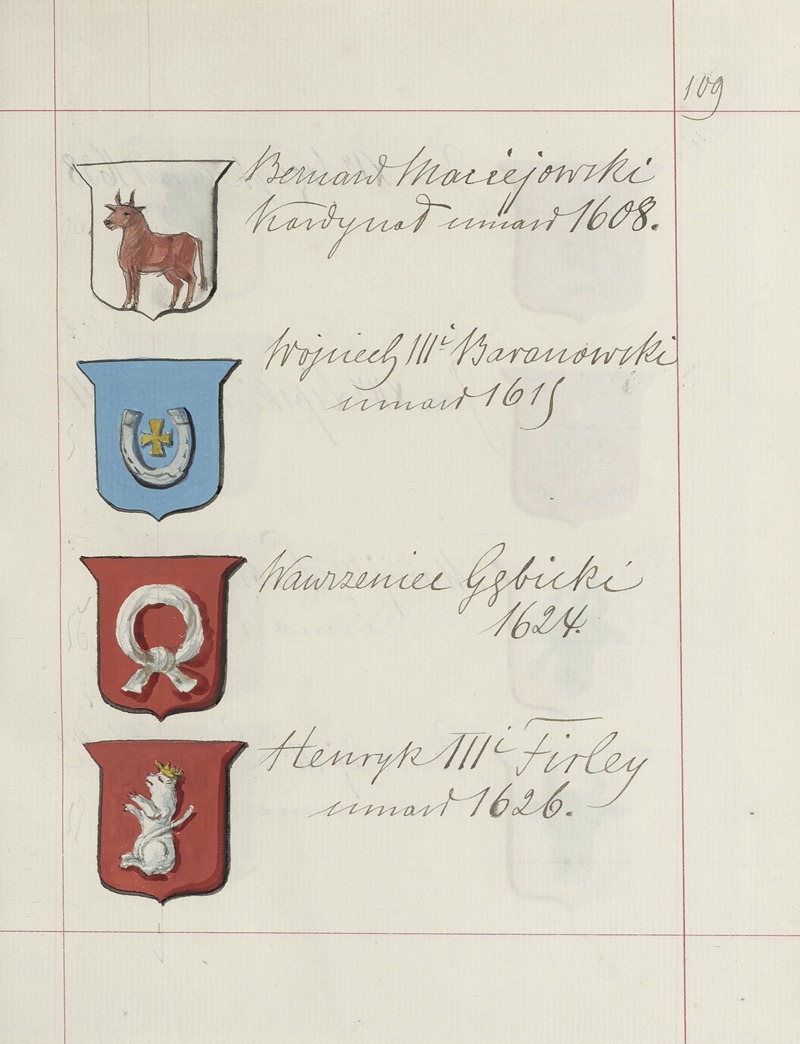 109
Bernard Maciejowski
Kardynał umarł 1608.
Wojciech IIIi Baranowski
umarł 1615
Wawrzeniec Gębicki
1624.
Henryk IIIi Firley
umarł 1626.